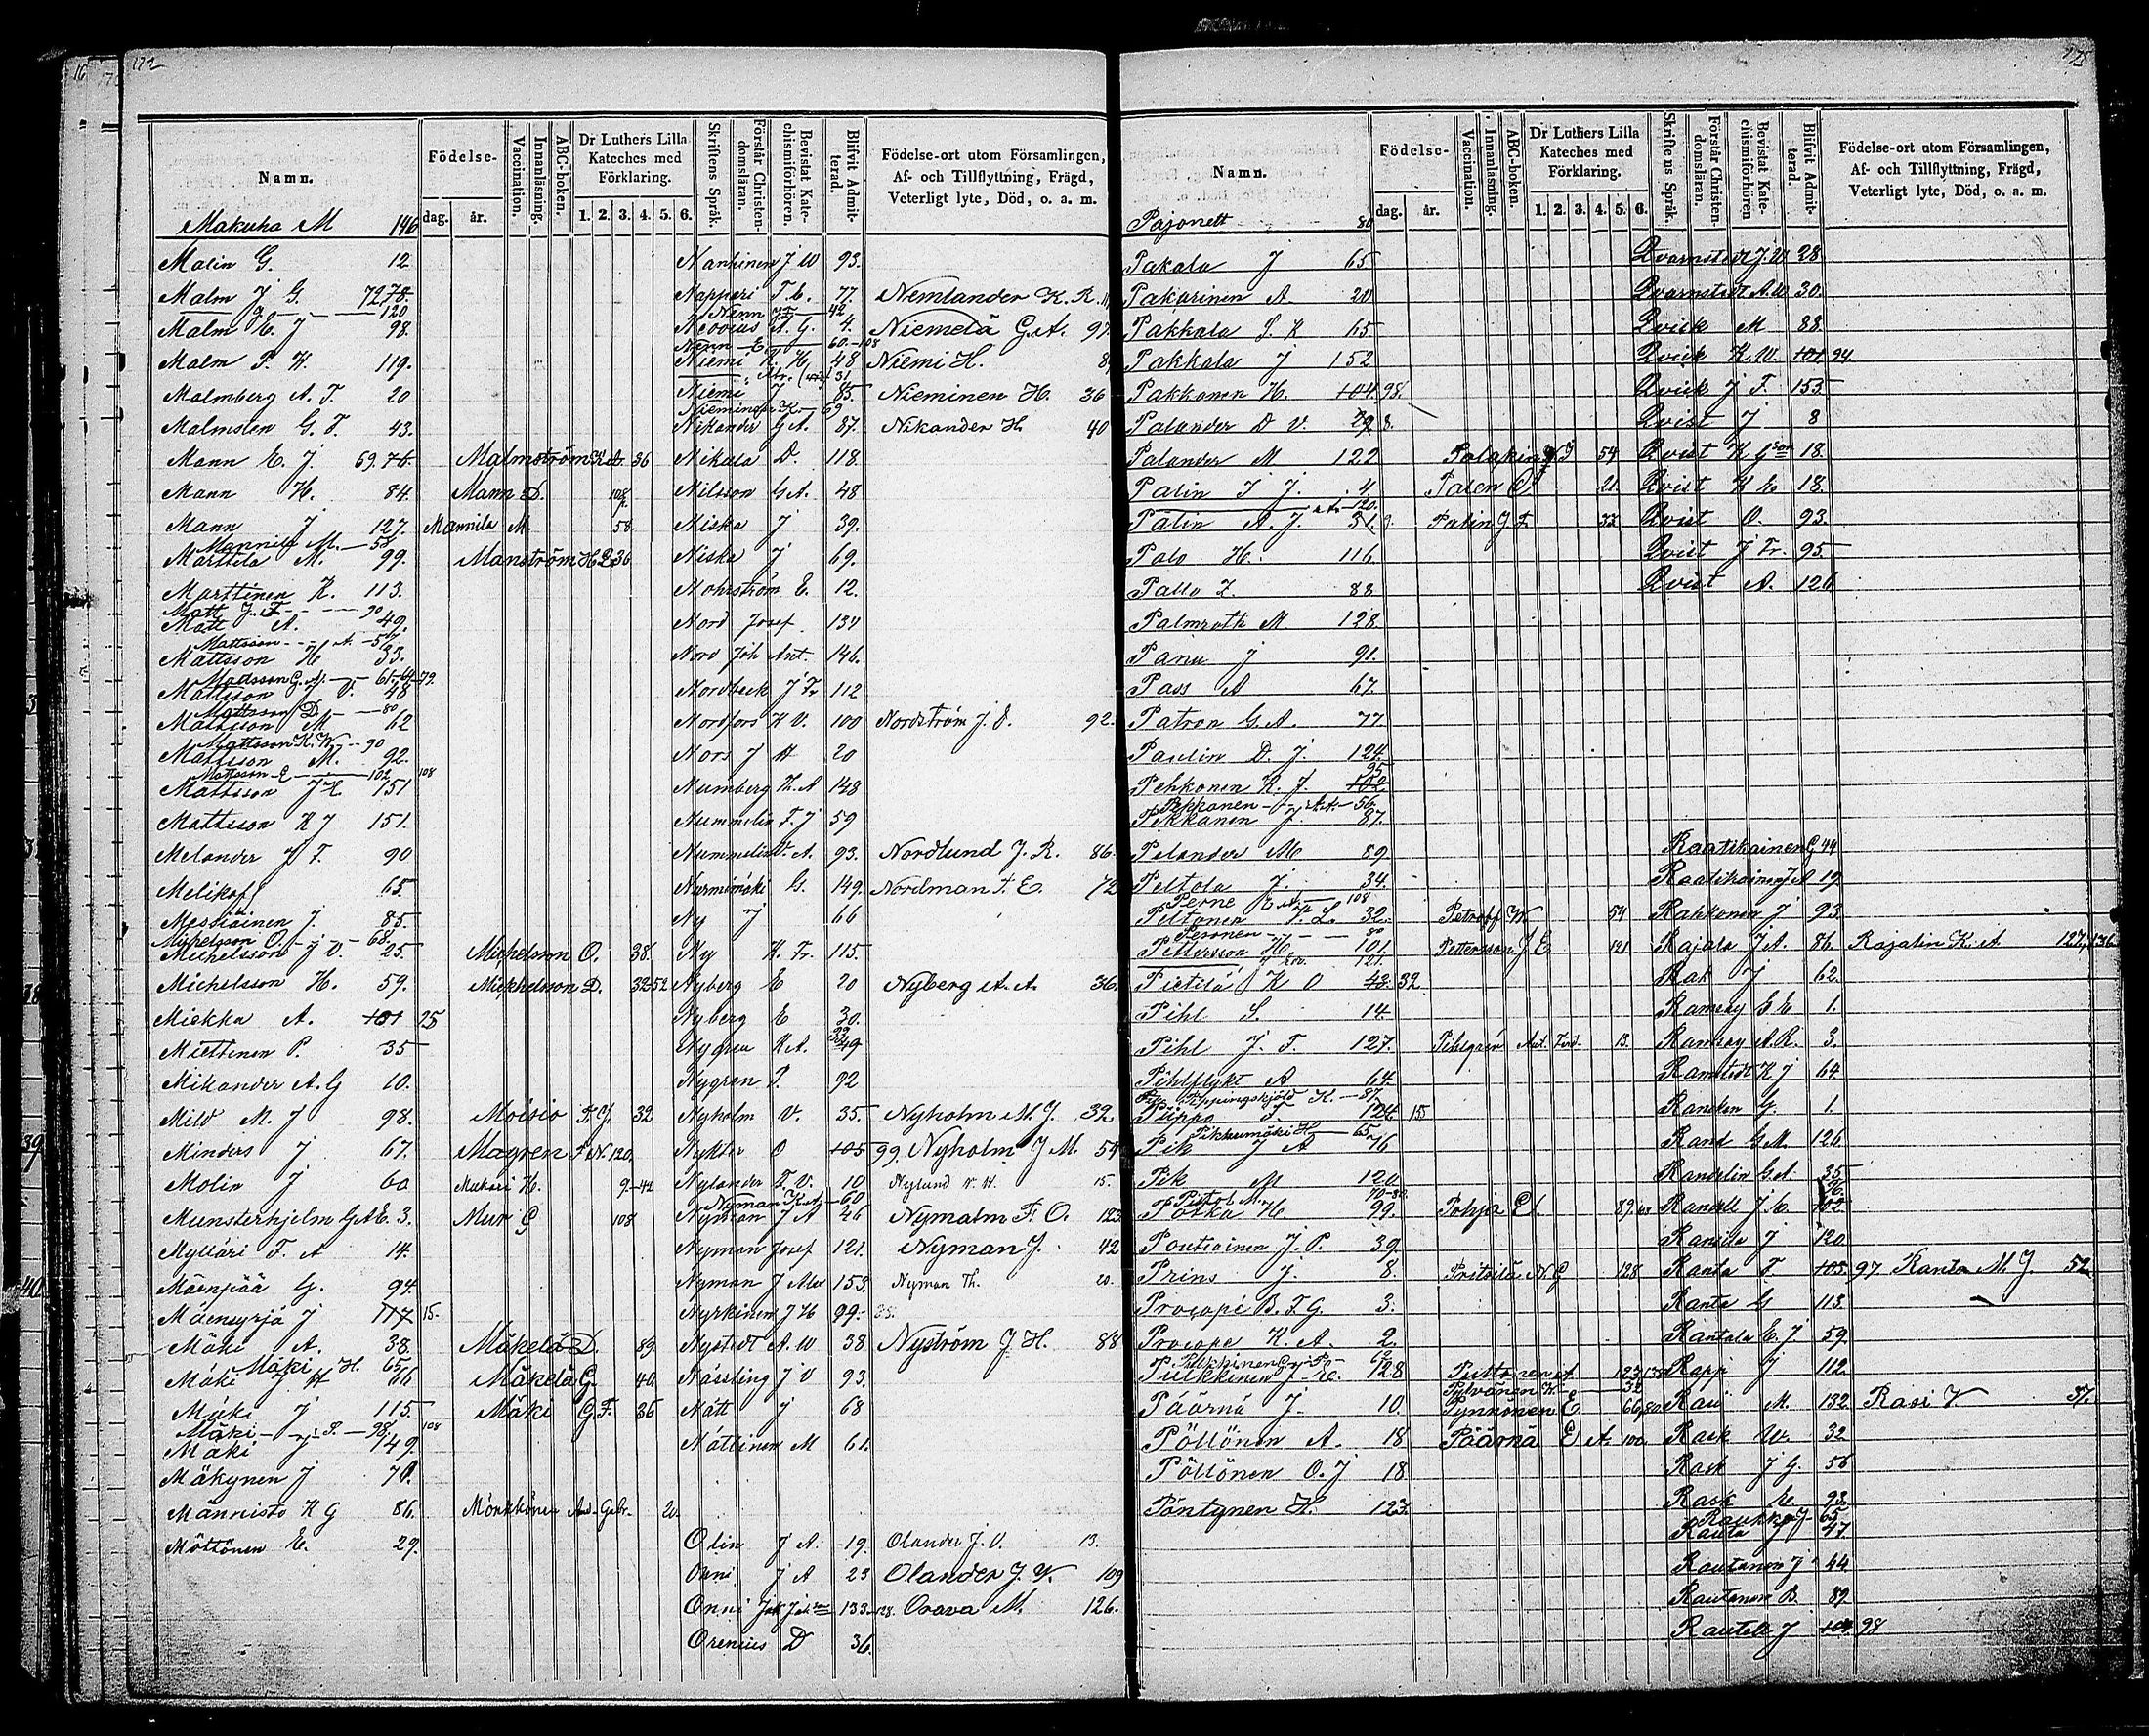 172
Namn.
Födelse-
dag.
år.
Vaccination.
Innanläsning.
ABC-boken.
Dr Luthers Lilla Kateches med Förklaring.
1. 2. 3. 4. 5. 6.
Skriftens Språk.
Förstår Christendomsläran.
Bevistat Katechismiförhören.
Blifvit Admitterad.
Födelse-ort utom Församlingen,
Af- och Tillflyttning, Frägd,
Veterligt lyte, Död, o. a. m.
Makuha M 146
Malin G. 12
Malm J G. 72 78.
120
Malm E. J 98.
Malm F. H. 119.
Malmberg A. F. 20
Malmsten G. F. 43.
Mann E. J. 69.
Mann H. 84.
Mann J 127.
Mannila M. 58
Marttila M. 99.
Marttinen K. 113.
Matt J. F. 90
Matt A. 49.
Mattsson A. 57
Mattsson H 33.
Madsson G. A. 61-64-79.
Mattsson J. V. 48
Mattsson D. 80
Mattsson M 62
Mattsson K. W. 90
Mattsson M. 92.
Mattsson E 102 108
Mattsson J E 151
Mattsson K J 151.
Melander J F. 90
Melikof 65.
Messiäinen J. 85.
Michelsson O. 68.
Michelsson J V. 25.
Michelsson H. 59.
Miekka A. 101 25
Miettinen P. 35
Mikander A. G 10.
Mild M. J 98.
Minders J 67.
Molin J 60
Munsterhjelm G A E. 3.
Mylläri F. A 14.
Mäenpää G. 94.
Mäensyrjä J 117 15.
Mäki A. 38.
Mäki H. 65
Mäki J. H 66
Mäki J 115.
Mäki J. S. 98. 108
Mäki J 149.
Mäkynen J 70.
Männistö K G 86.
Möttönen E. 29.
Malmström K A. 36
Mann D. 108
Mannila M. 58.
Manström H D 36
Michelsson O. 38.
Mickhelsson D. 32 52
Moisio F. J. 32
Magren F N. 120.
Mukari H. 9.-42
Mur G 108
Mäkelä D. 89
Mäkelä G. 40.
Mäki G. F. 36
Mönkkönen And. Gabr. 20.
Nanhinen J W 93.
Nappari F. E. 77.
Nenn J F 42
Neovius A. G. 4.
Nenn E. 60.-108
Niemi K. H. 48
31.
Niemi J 85.
Nieminen K 69
Nikander G A. 87.
Nikala D. 118.
Nilsson G A. 48
Niska J 39.
Niska J 69.
Nohrström E. 12.
Nord Josef 134
Nord Joh Ant. 146.
Nordbeck J Fr 112
Nordfors K V. 100
Nors J A 20
Numberg K. A 148
Nummelin F. J 59
Nummelin V. A. 93.
Nurmimäki G. 149.
Ny J 66
Ny K. Fr. 115.
Nyberg E 20
Nyberg E 30.
Nygren K A. 49
Nygren P. 92
Nyholm V. 35.
Nykter O 105 99
Nylander F. V. 10
Nyman K A 60
Nyman J A 26
Nyman Josef 121.
Nyman J Alex 153.
Nyrkinen J H 99.
Nystedt A. W 38.
Nässling J V 93.
Nätt J 68
Nättinen M 61.
Olin J A. 19.
Onni J A 23
Onni Joh Joh:son 133. 128.
Orenius D 36.
Nemlander K. R.
Niemelä G. A. 97.
Niemi H.
Nieminen H. 36
Nikander H. 40
Nordström J. E. 92.
Nordlund J. R. 86.
Nordman F. E. 72
Nyberg A. A. 36.
Nyholm M. J. 32
Nyholm J M. 54
Nylund V. H. 15.
Nymalm F. O. 123
Nyman J. 42
Nyman Th. 20.
Nyström J. H. 88
Olander J. V. 13.
Olander J. W. 109
Orava M. 126.
Namn.
Födelse-
dag.
år.
Vaccination.
Innanläsning.
ABC-boken.
Dr Luthers Lilla Kateches med Förklaring.
1. 2. 3. 4. 5. 6.
Skriftens Språk.
Förstår Christendomsläran.
Bevistat Katechismiförhören
Blifvit Admitterad.
Födelse-ort utom Församlingen,
Af- och Tillflyttning, Frägd,
Veterligt lyte, Död, o. a. m.
Pajonett 80
Pakala J 65
Pakarinen A. 20
Pakkala S. K 65
Pakkala J 152
Pakkanen H. 104. 98.
Palander D V. 29 8.
Palander M 122
Palin J J. 4.
A. 120.
Palin A. J. 31. 9.
Palo H. 116.
Pallo Z. 88
Palmroth M 128.
Panu J 91.
Pass A 67.
Patron G. A. 77
Paulin D. J. 124.
Pehkonen K. J. 102 95
Pekkanen A. A. 56
Pekkanen J 87.
Pelander M 89
Peltola J. 34.
Perne E 108
Peltonen V. L. 32.
Pesonen 80
Pettersson H. 101
121.
Pietilä K O 42. 32
Pihl S. 14
Pihl J. F. 127.
Pihlflykt A 64.
Pippingsköld K. 87.
Piippo F. 124 15
Pikkumäki H 65
Pik J A 76
Pik M 120
Pistol M. 70-80
Poika H. 99.
Poutiainen J. P. 39.
Prins J. 8.
Procopé B. F. G. 3.
Procope K. A. 2.
Pulkkinen 62
Pulkkinen J. E. 128
Päärnä J. 10.
Pöllönen A. 18
Pöllönen O. J 18
Pöntynen H. 123.
Polakin N J 54
Palen O. 21.
Palin J F. 33
Petroff W 54
Pettersson J E 121
Pihlgrén Ant. Ferd. 13.
Pohja E. 89.
Pritsilä N. G 128
Puttonen A. 123
Pylvänen K. 32
Pynnönen E 66, 80
Päärnä E A. 100
Qvarnstedt J. W 28
Qvarnstedt A. W 30.
Qvick M 88
Qvick K. W. 101 94
Qvick J F. 153
Qvist J 8
Qvist K J son 18.
Qvist K E. 18.
Qvist O. 93.
Qvist J Fr. 95
Qvist A. 126
Raatikainen G 44
Raatikainen J A 19
Rahkonen J 93.
Rajala J A. 86.
Rak J 62.
Ramsay E E 1.
Ramsay A. R. 3.
Ramstedt K J 64
Rancken G. 1.
Rand G M. 126
Randelin G. A. 35
Randell J E. 102 96
Ransila J 120
Ranta F. 105. 97
Ranta G 113.
Rantala E. J. 59.
Rapp J 112
Rasi M. 132
Rask W. 32
Rask J G. 56
Rask E 93.
Raukko J 65
Rauta J 47
Rautanen J 44
Rautanen B. 89
Rautell J 104 98
Rajalin K. A 127, 136
Ranta M. J. 52
Rasi V. 57.